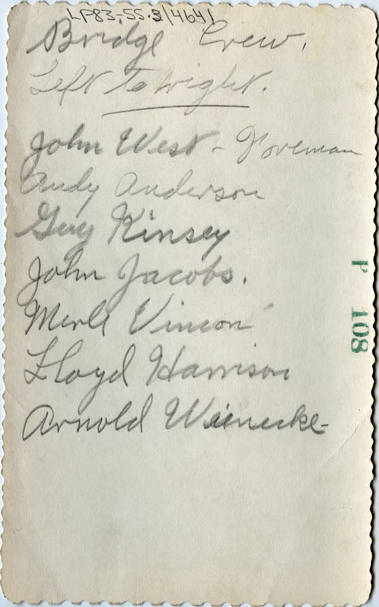 LP83, SS.3/4641
Bridge Crew.
Left to right.
John West - Foreman
Andy Anderson
Guy Kinsey
John Jacobs.
Merle Vinson
Lloyd Harrison
Arnold Wienecke
P 108